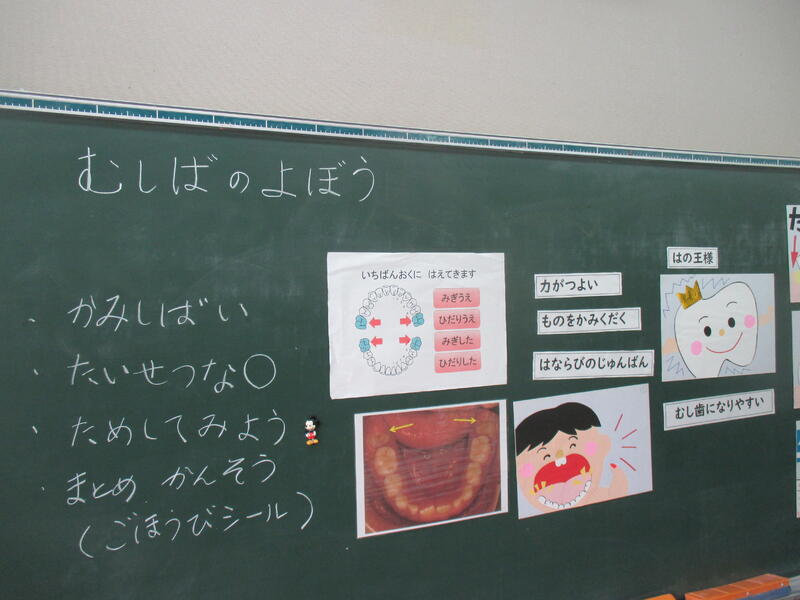 むしばのよぼう
・かみしばい
・たいせつな〇
・ためしてみよう
・まとめ かんそう
(ごほうびシール)
いちばんおくに はえてきます
みぎうえ
ひだりうえ
みぎした
ひだりした
力がつよい
ものをかみくだく
はならびのじゅんばん
はの王様
むし歯になりやすい